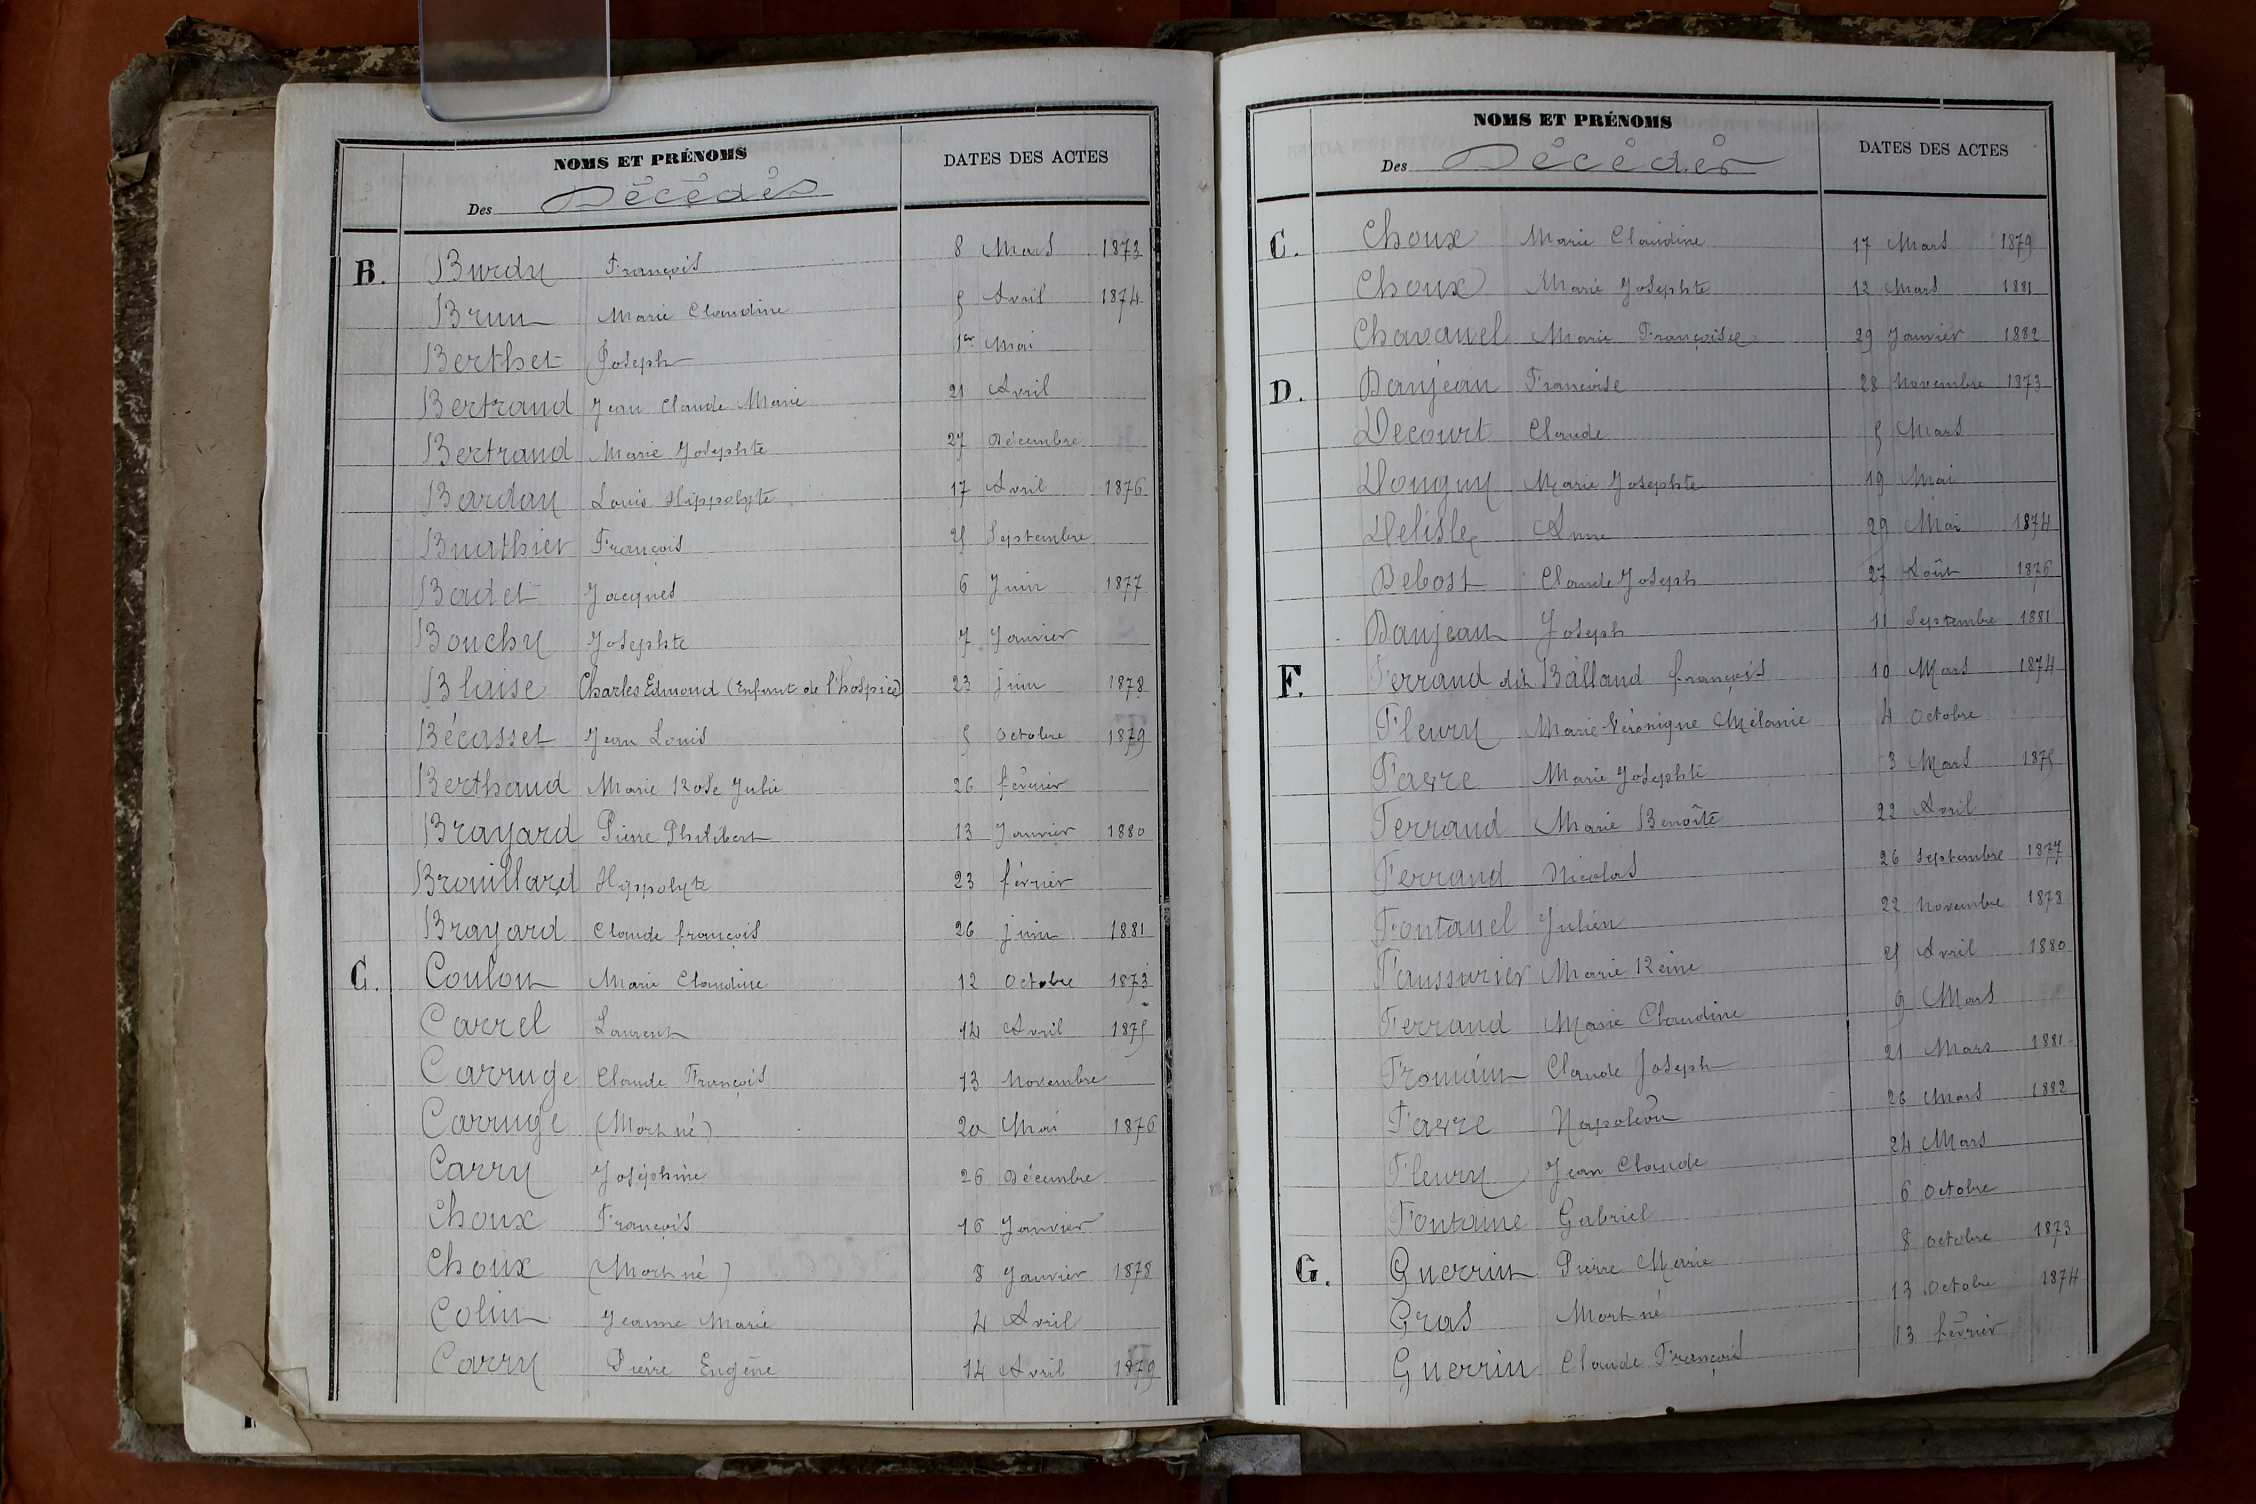 NOMS ET PRÉNOMS
DATES DES ACTES
Des Décédés
B. Burdy François 8 Mars 1873
Brun Marie Claudine 5 Avril 1874
Berthet Joseph 1er Mai
Bertrand Jean Claude Marie 21 Avril
Bertrand Marie Josephte 27 Décembre
Barday Louis Hippolyte 17 Avril 1876
Buathier François 25 Septembre
Badet Jacques 6 Juin 1877
Bouchy Josephte 7 Janvier
Blaise Charles Edmond (Enfant de l'hospice) 23 juin 1878
Bécasset Jean Louis 5 octobre 1879
Berthaud Marie Rose Julie 26 février
Brayard Pierre Philibert 13 Janvier 1880
Brouillard Hippolyte 23 février
Brayard Claude françois 26 juin 1881
C. Coulon Marie Claudine 12 octobre 1873
Carrel Laurent 14 Avril 1875
Carruge Claude François 13 Novembre
Carruge (Mort né) 20 Mai 1876
Carry Joséphine 26 Décembre
Choux François 16 Janvier
Choux (Mort né) 8 Janvier 1878
Colin Jeanne Marie 4 Avril
Carry Pierre Eugène 14 Avril 1879
NOMS ET PRÉNOMS
DATES DES ACTES
Des Décédés
C. Choux Marie Claudine 17 Mars 1879
Choux Marie Josephte 12 Mars 1881
Chavanel Marie Françoise 29 Janvier 1882
D. Danjean Françoise 28 Novembre 1873
Decourt Claude 5 Mars
Douguy Marie Josephte 19 Mai
Delisle Anne 29 Mai 1874
Debost Claude Joseph 27 Août 1876
Danjean Joseph 11 Septembre 1881
F. Ferrand dit Balland françois 10 Mars 1874
Fleury Marie Véronique Mélanie 4 octobre
Favre Marie Josephte 3 Mars 1875
Ferrand Marie Benoîte 22 Avril
Ferrand Nicolas 26 Septembre 1877
Fontanel Julien 22 Novembre 1878
Faussurier Marie Reine 25 Avril 1880
Ferrand Marie Claudine 9 Mars
Fromain Claude Joseph 21 Mars 1881
Favre Napoléon 26 Mars 1882
Fleury Jean Claude 24 Mars
Fontaine Gabriel 6 octobre
G. Guerrin Pierre Marie 8 octobre 1873
Gras Mort né 13 Octobre 1874
Guerrin Claude François 13 février